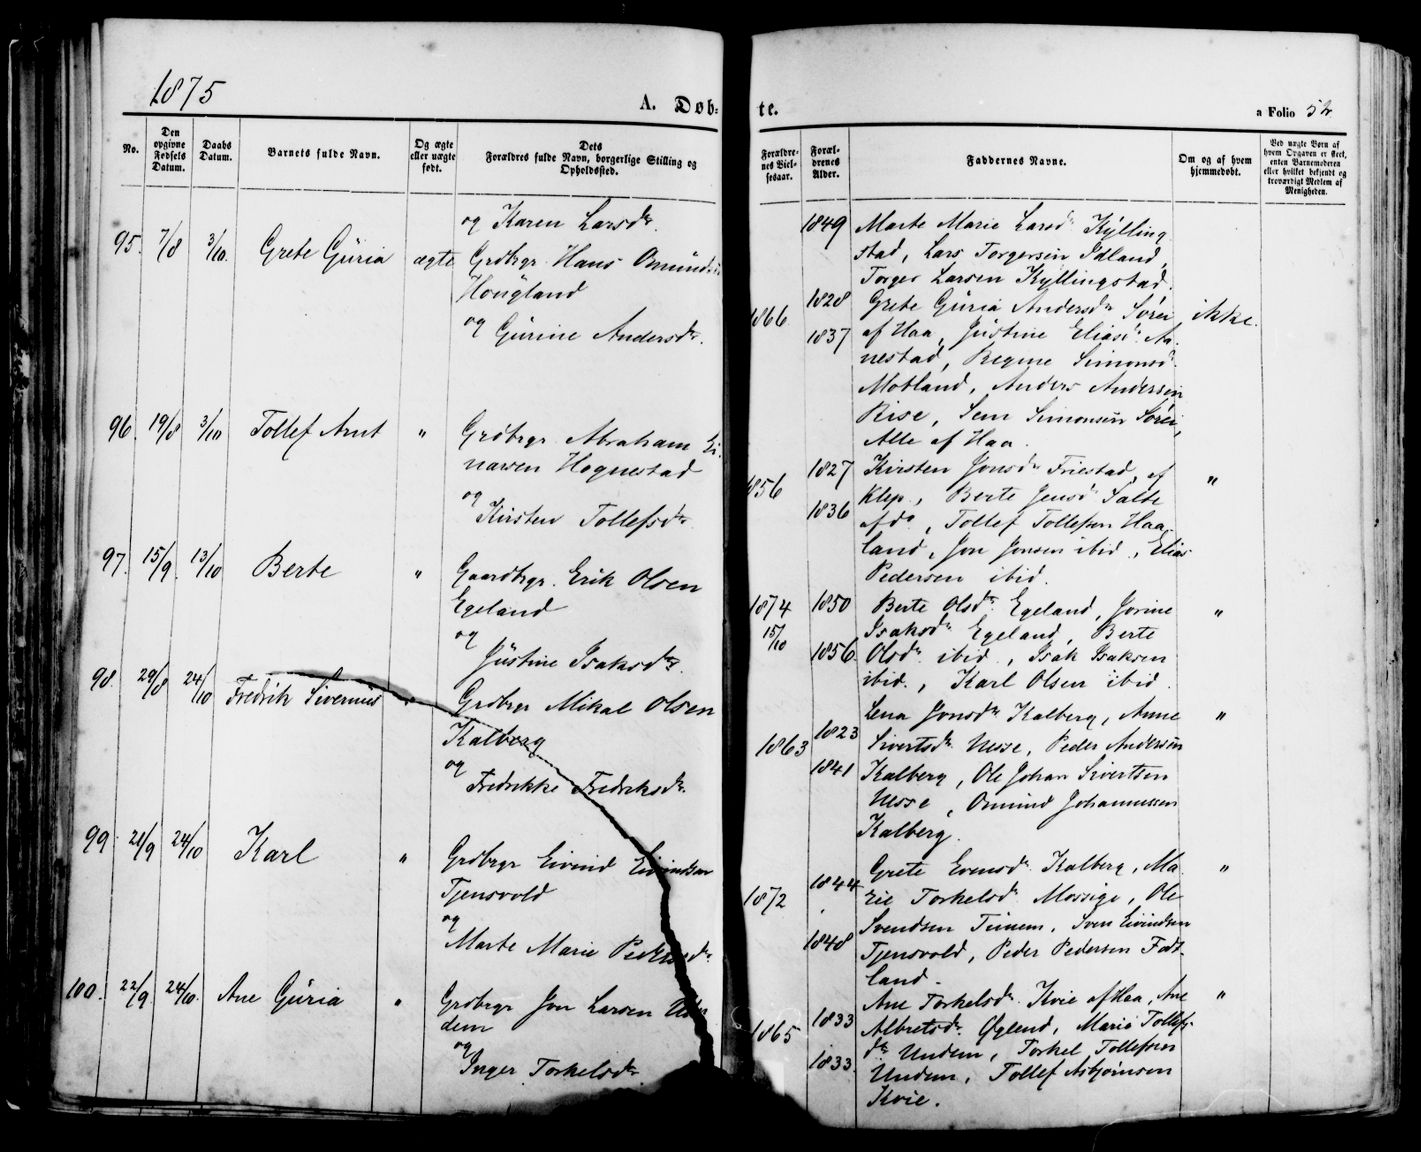 1875
A. Døb-
te.
a Folio 52
No.
Den opgivne Fødsels Datum.
Daabs Datum.
Barnets fulde Navn.
Og ægte eller uægte født.
Dets Forældres fulde Navn, borgerlige Stilling og Opholdssted.
Forældrenes Vielsesaar.
Forældrenes Alder.
Faddernes Navne.
Om og af hvem hjemmedøbt.
Ved uægte Børn af hvem Opgaven er skeet, enten Barnemoderen eller hvilket bekjendt og troværdigt Medlem af Menigheden.
og Karen Larsdr.
1849 Marte Marie Larsdr Kylling
stad, Lars Torgersen Idland,
Torger Larsen Kyllingstad.
95. 7/8 3/10. Grete Guria ægte Grdbrgr. Hans Omunds
Hougland
og Gurine Andersdr.
1866 1828 Grete Guria Andersdr Sørei ikke.
1837 af Haa, Justine Eliasdr. Aa-
nestad, Regine Simonsdr.
Motland, Anders Andersen
Rise, Sem Simonsen Sørei,
Alle af Haa.
96. 19/8 3/10 Tollef Arnt " Grdbrgr. Abraham Ei-
narsen Hognestad
og
Kirsten Tollefsdr.
1856 1827 Kirsten Jonsdr Friestad, af "
1836 Klep, Berte Jensdr Salte
af do, Tollef Tollefsen Haa-
land, Jon Jonsen ibid., Elias
Pedersen ibid.
97. 15/9. 13/10 Berte " Gaardbrgr. Erik Olsen
Egeland
og
Justine Isaksdr.
1874 15/10 1850 Berte Olsdr. Egeland, Jorine "
Isaksdr Egeland, Berte
1856. Olsdr. ibid., Isak Isaksen
ibid., Karl Olsen ibid.
98. 29/8 24/10 Fredrik Sivernius " Grdbrgr Mikal Olsen
Kalberg
og
Fredrikke Fredriksdr.
Lena Jonsdr Kalberg, Anne "
1863 1823 Sivertsdr. Nesse, Peder Andersen
1841 Kalberg, Ole Johan Sivertsen
Nesse, Omund Johannessen
Kalberg.
99 21/9 24/10 Karl " Grdbrgr Eivind Eivindsen
Tjensvold
og
Marte Marie Pedersdr.
Grete Evensdr. Kalberg, Ma- "
1872 1844 rie Torkelsdr. Mossige, Ole
Svendsen Timem, Sven Eivindsen
1848 Tjensvold, Peder Pedersen Fadt-
land.
100. 22/9 24/10. Ane Guria " Grdbrgr Jon Larsen Un-
dem
og
Inger Torkelsdr
Ane Torkelsdr. Kvie af Haa, Ane "
1865 1833 Albretsdr. Øglend, Maria Tollefs-
dr Undem, Torkel Tollefsen
1833. Undem, Tollef Asbjørnsen
Kvie.